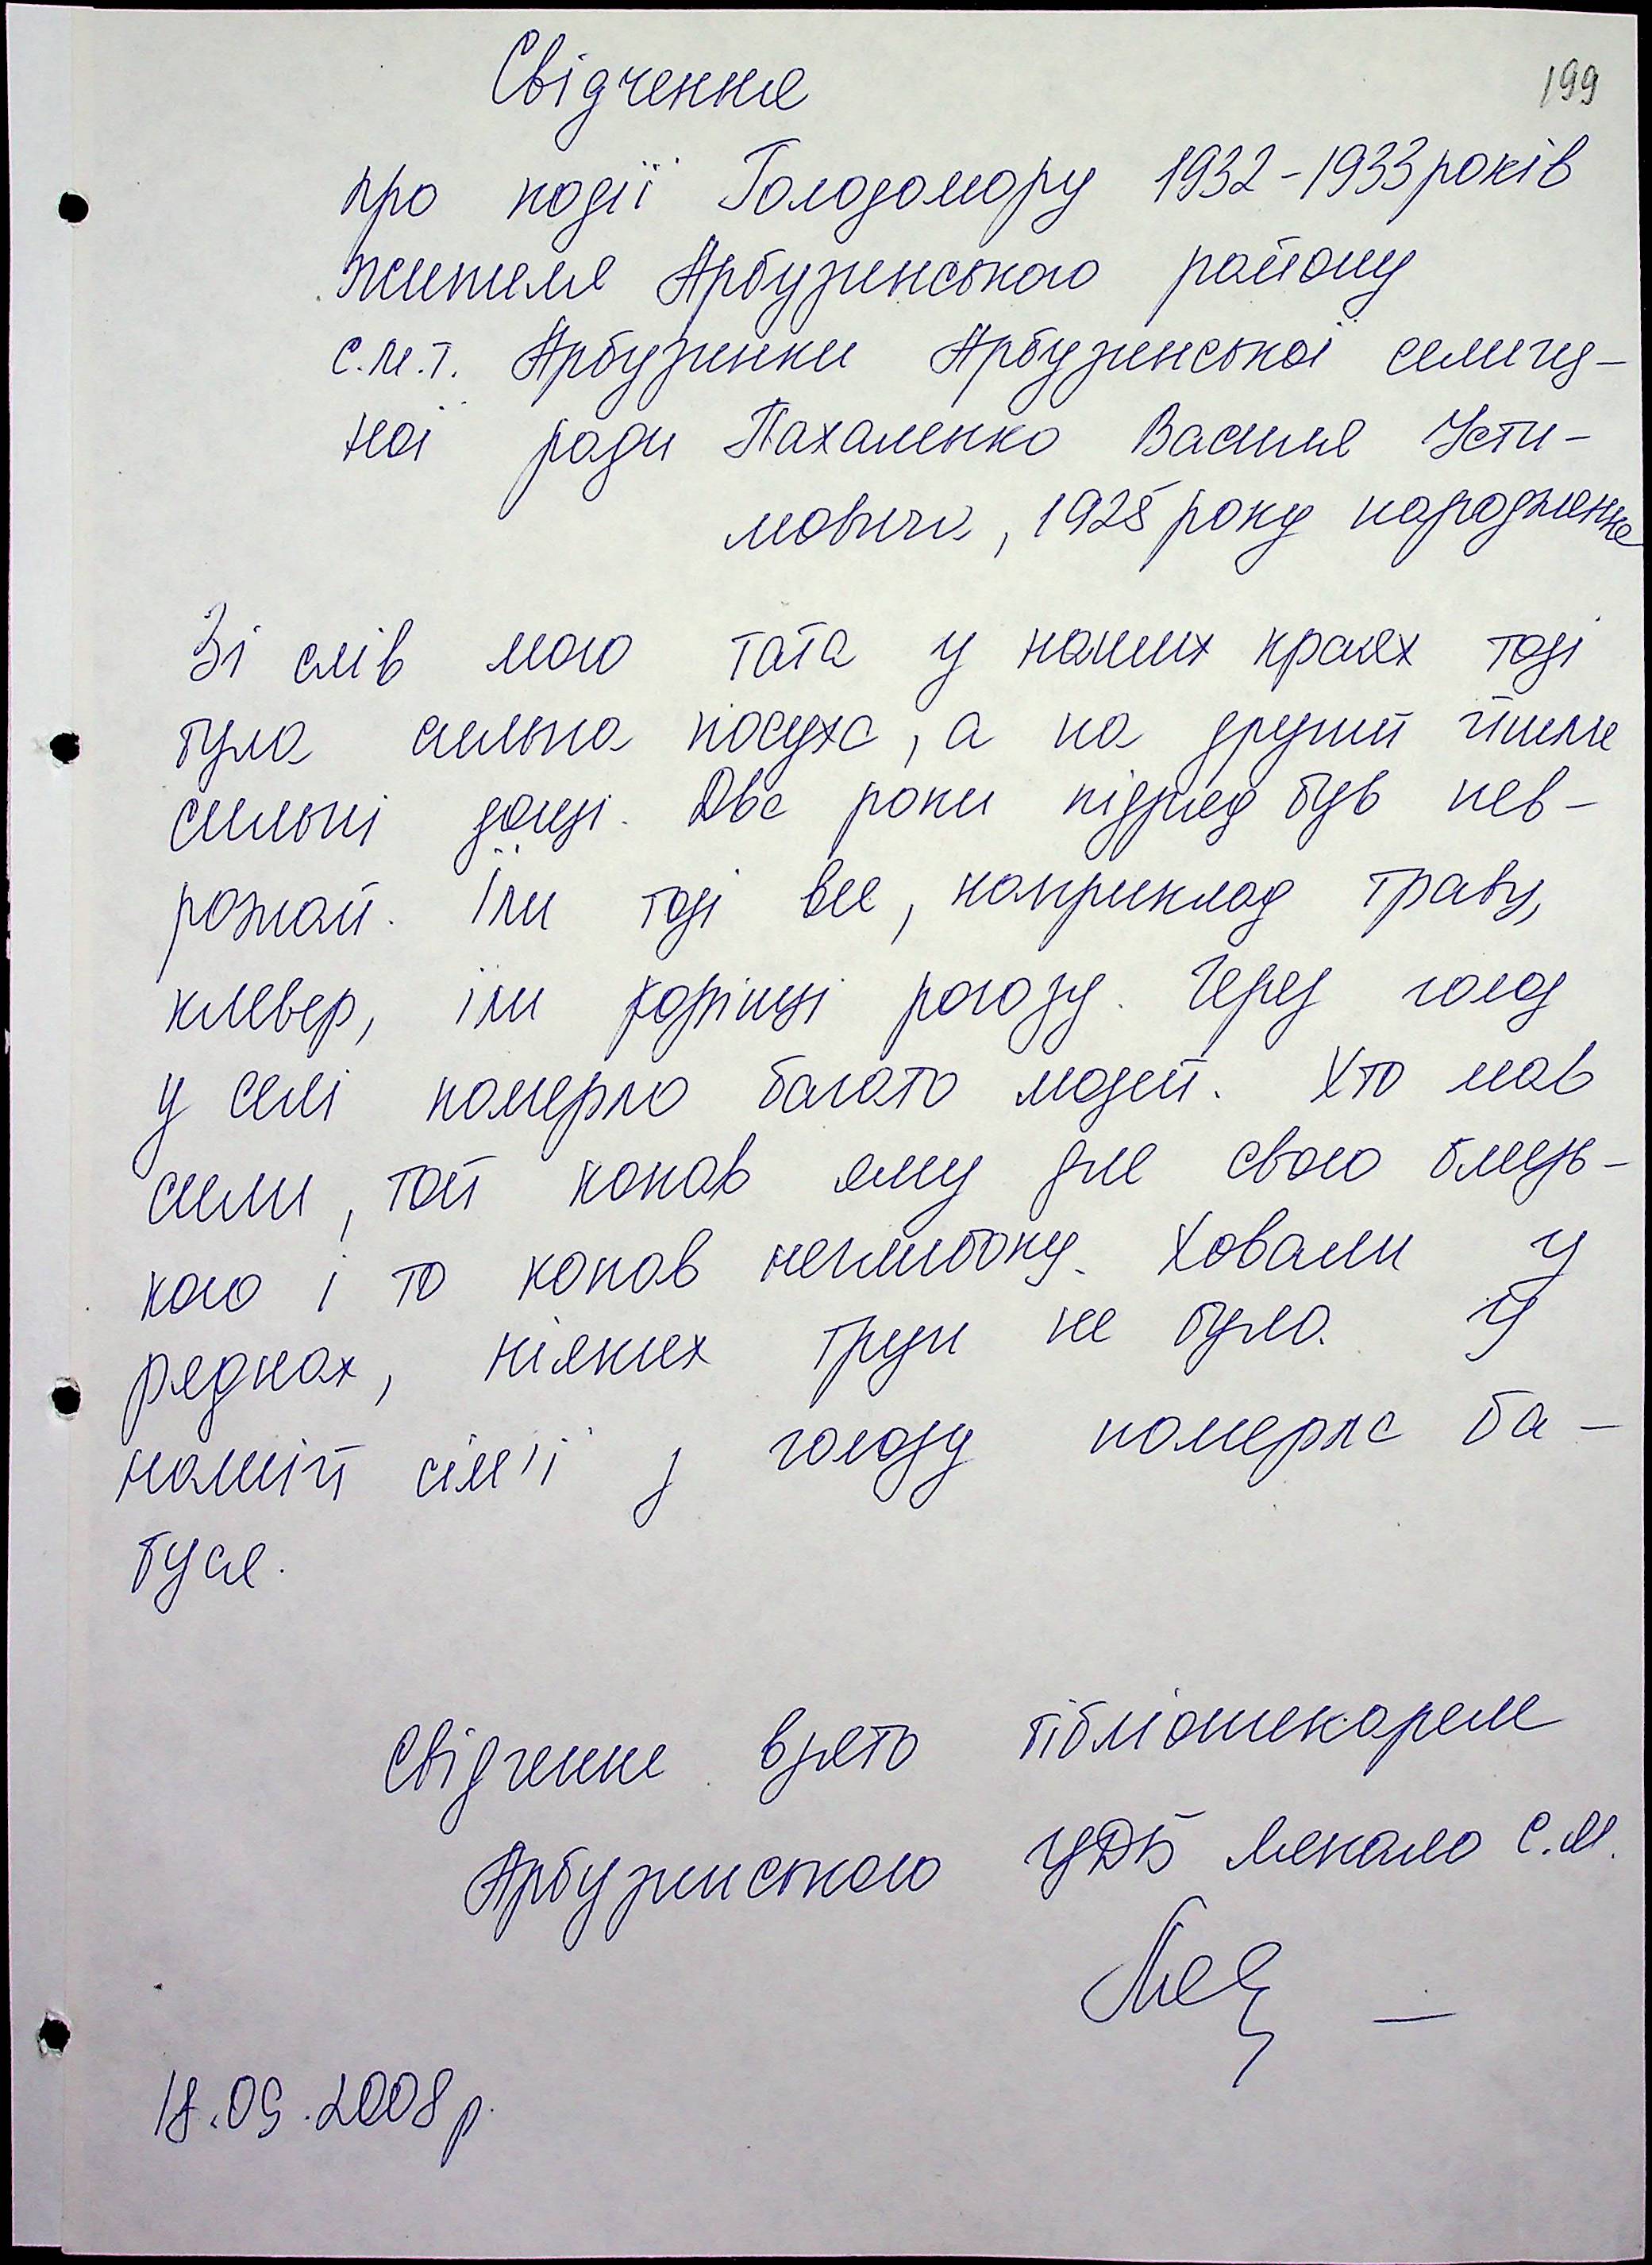 199
Свідчення
про події Голодомору 1932-1933 років
жителя Арбузинського району
с.м.т. Арбузинки Арбузинської селищ-
ної ради Пахаленко Василя Усти-
мовича, 1928 року народження
Зі слів мого тата у наших краях тоді
була сильна посуха, а на другий пішли
сильні дощі. Два роки підряд був нев-
рожай. Їли тоді все, наприклад траву,
клевер, їли корінці рогозу. Через голод
у селі померло багато людей. Хто мав
сили, той копав яму для свого близь-
кого і то копав неглибоку. Ховали у
ряднах, ніяких трун не було. У
нашій сім'ї з голоду померла ба-
буся.
Свідчення взято бібліотекарем
Арбузинського ЦДБ С.М.
18.09.2008 р.